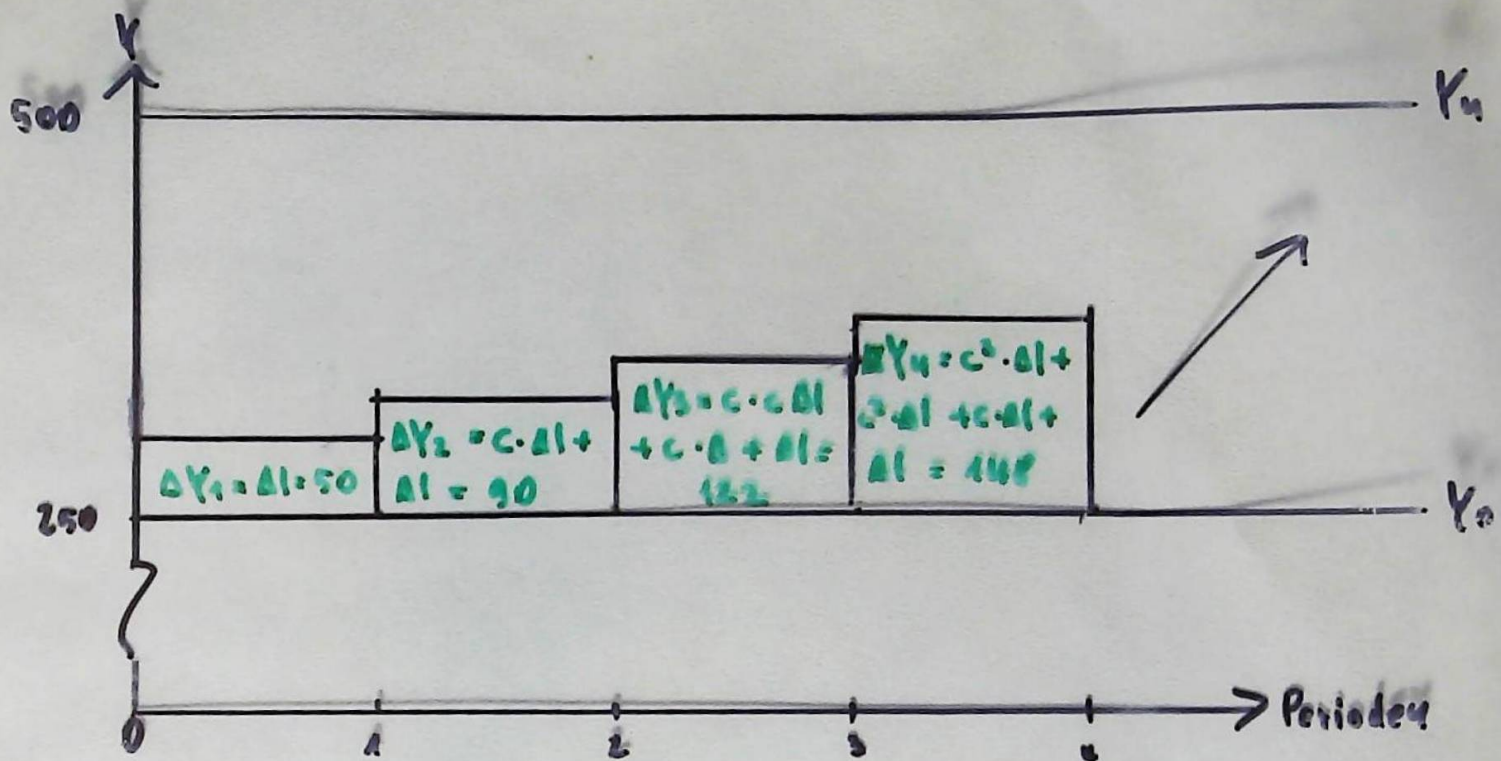 Y
500
Yn
ΔY₁ = ΔI = 50
ΔY₂ = c·ΔI +
ΔI = 90
ΔY₃ = c·c ΔI
+ c·Δ + ΔI =
122
ΔY₄ = c³·ΔI +
c²·ΔI + c·ΔI +
ΔI = 148
250
Y₀
0
1
2
3
4
Perioden